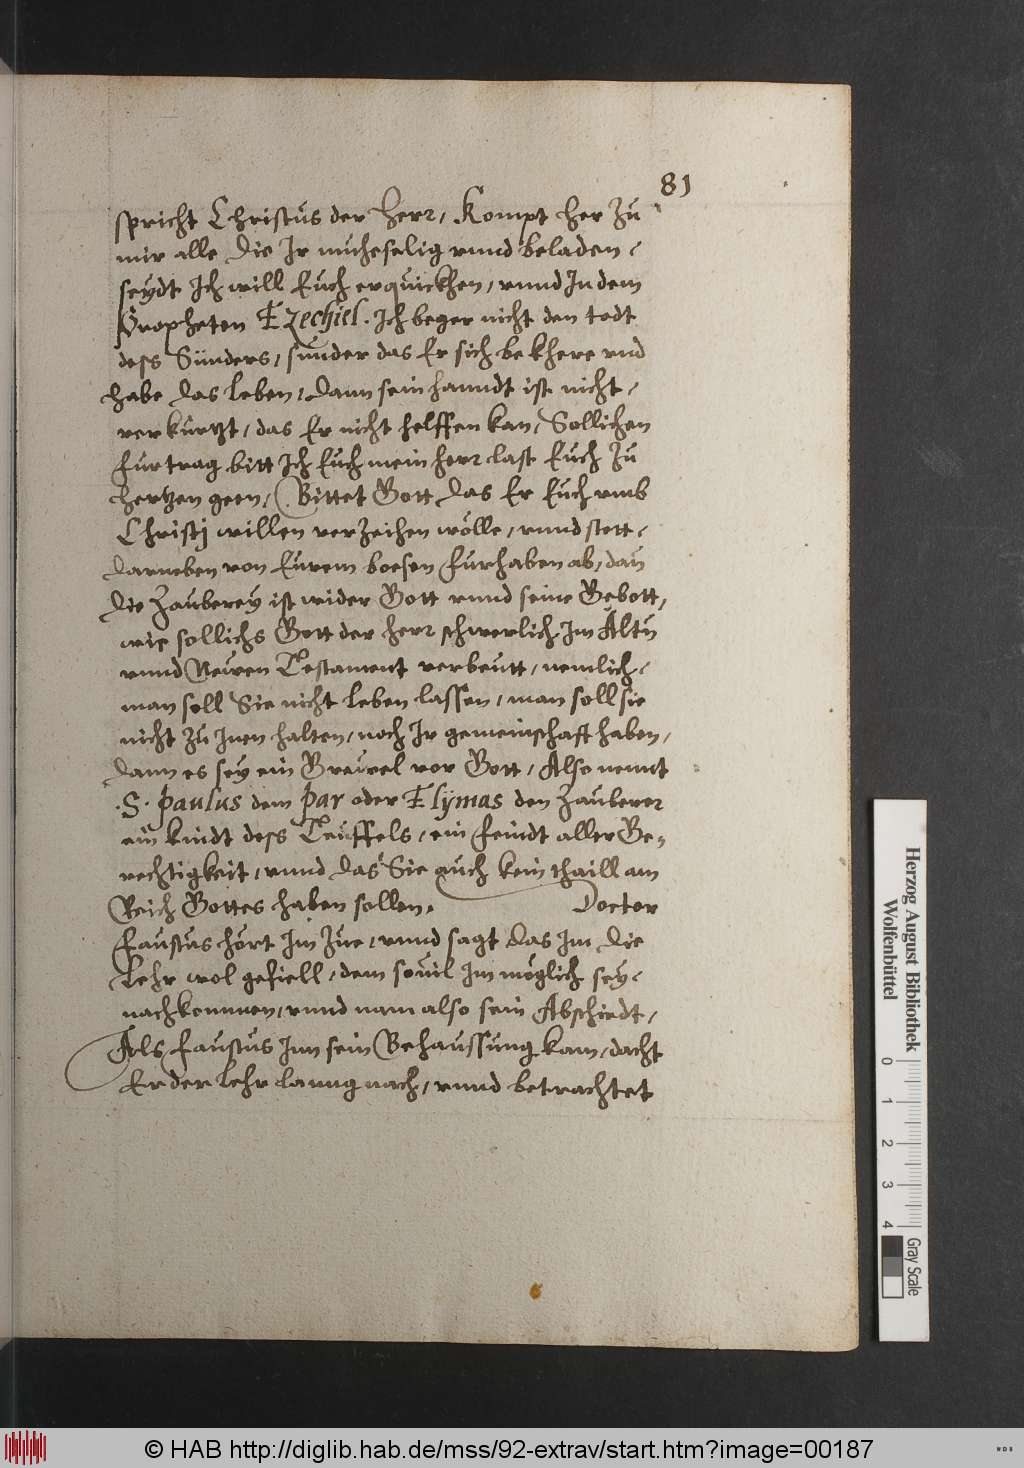 81
spricht Christus der Herr, Kompt her zu
mir alle die Ir muheselig vnnd beladen,
seydt Ich will Euch erquickhen, vnnd In dem
Propheten Ezechiel. Ich beger nicht den todt
dess Sünders, sunder das Er sich bekhere vnd
habe das leben, dann sein hanndt ist nicht,
verkürtzt, das Er nicht helffen kan, Sollichen
furtrag bitt Ich Euch mein herr last Euch zu
hertzen geen, Bittet Gott das Er Euch vmb
Christj willen verzeihen wölle, vnnd stett,
darneben von Eurem boesen furhaben ab, dan
die Zauberey ist wider Gott vnnd seine Gebott,
wie sollichs Gott der herr schwerlich Im Altn
vnnd Neuen Testament verbeutt, nemlich,
man soll Sie nicht leben lassen, man soll sie
nicht zu Inen halten, noch Ir gemeinschafft haben,
dann es sey ein Greuel vor Gott, Also nennt
.S. paulus dem par oder Elymas den Zauberer
ein kindt dess Teuffels, ein feindt aller Ge,
rechtigkeit, vnnd das Sie auch kein thaill am
Reich Gottes haben sollen. Doctor
faustus hört Im zue, vnnd sagt das Im die
lehr wol gefiell, dem souil Im möglich sey,
nachkommen, vnnd nam also sein Abschiedt,
Als faustus Inn sein Behaussung kam, dacht
Er der lehr lanng nach, vnnd betrachtet
Herzog August Bibliothek
Wolfenbüttel
0 1 2 3 4
Gray Scale
© HAB http://diglib.hab.de/mss/92-extrav/start.htm?image=00187